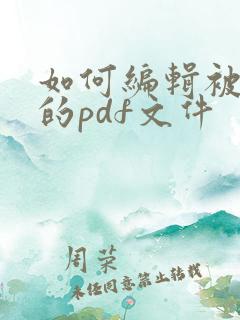 如何编辑被
的pdf文件
周荣
未经同意禁止转载